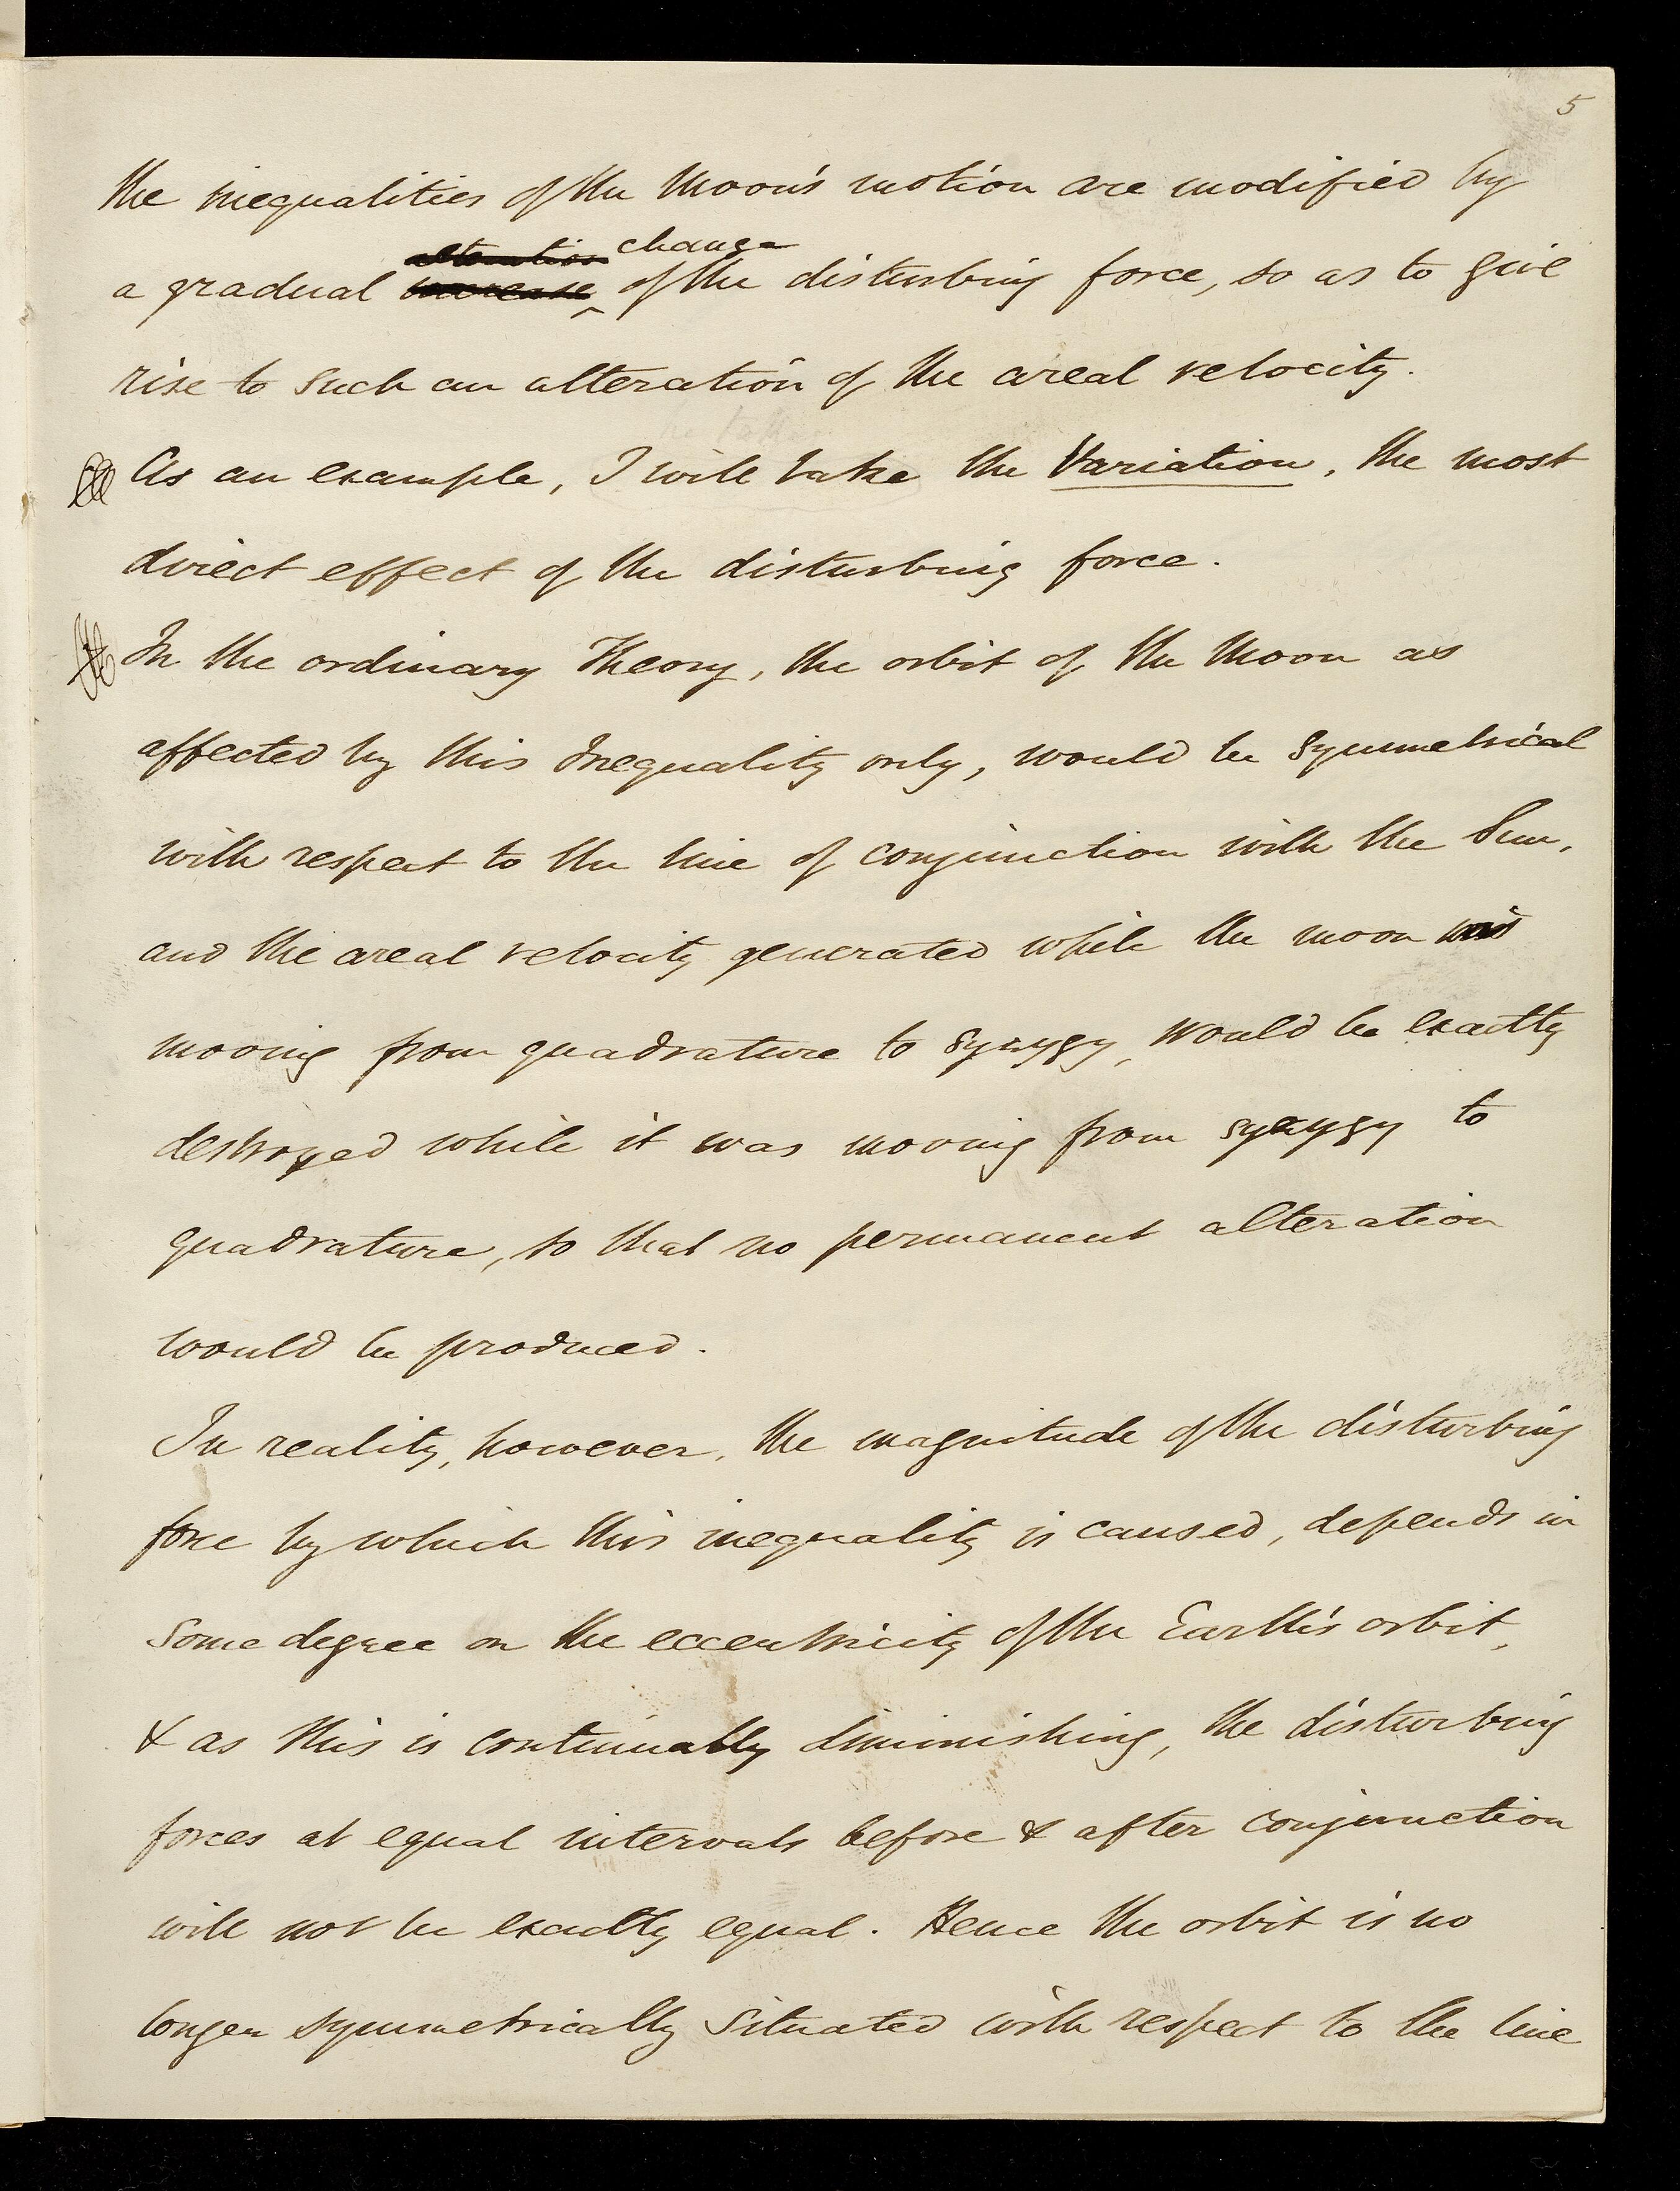 5
the inequalities of the Moon's motion are modified by
alteration change
a gradual increase of the disturbing force, so as to give
rise to such an alteration of the areal velocity.
As an example, I will take the Variation, the most
direct effect of the disturbing force.
In the ordinary Theory, the orbit of the Moon as
affected by this Inequality only, would be symmetrical
with respect to the line of conjunction with the Sun,
and the areal velocity generated while the moon was
moving from quadrature to syzygy, would be exactly
destroyed while it was moving from syzygy to
quadrature, so that no permanent alteration
would be produced.
In reality, however, the magnitude of the disturbing
force by which this inequality is caused, depends in
some degree on the eccentricity of the Earth's orbit,
& as this is continually diminishing, the disturbing
forces at equal intervals before & after conjunction
will not be exactly equal. Hence the orbit is no
longer symmetrically situated with respect to the line